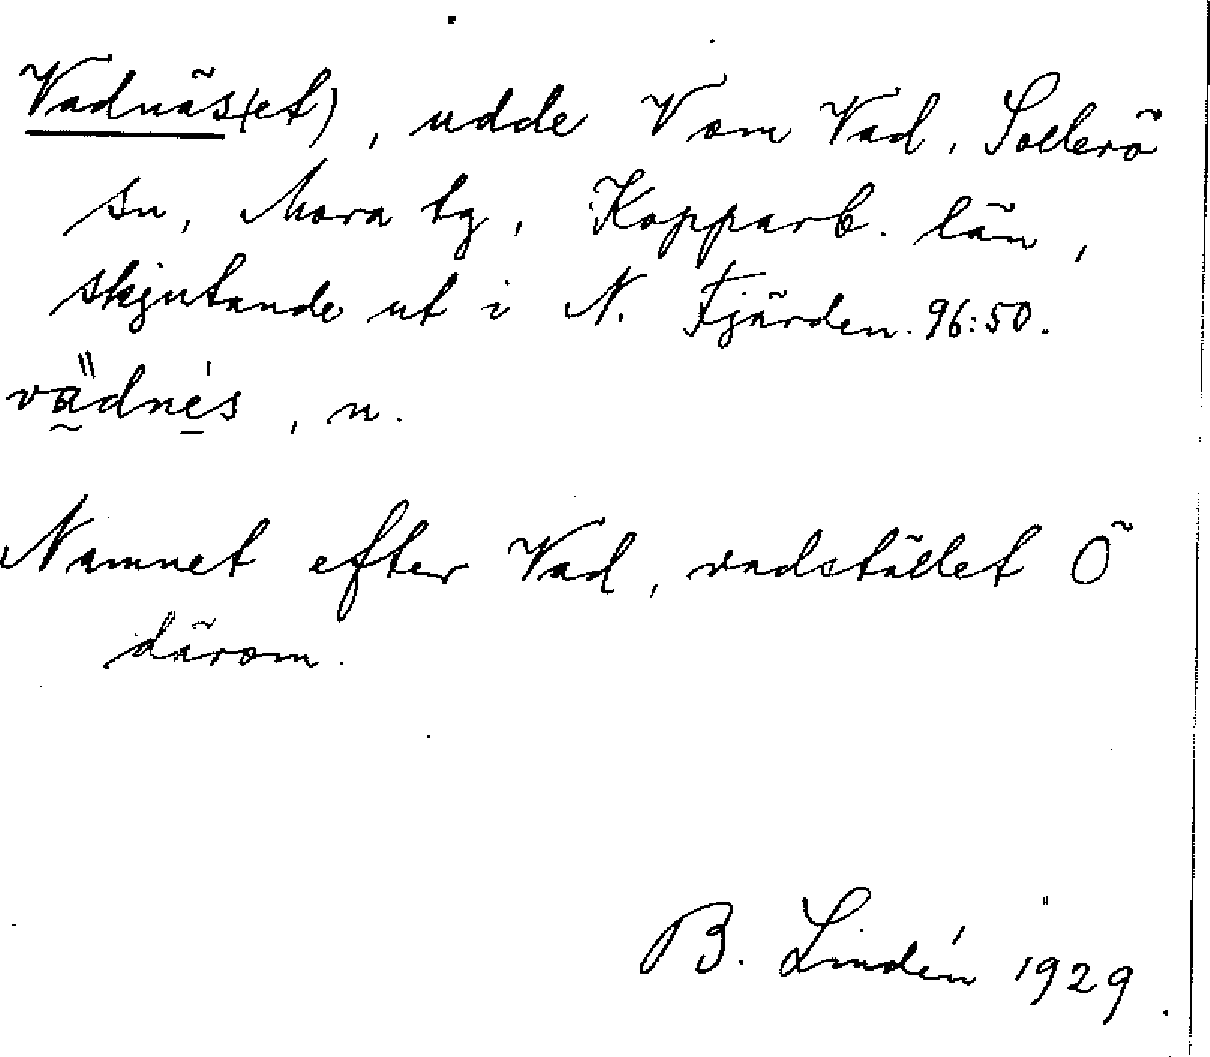 Vadnäs(et), udde V om Vad, Sollerö
sn, Mora tg, Kopparb. län,
skjutande ut i N. Fjärden. 96:50.
vädnès, n.
Namnet efter Vad, vadstället Ö
därom.
B. Lindén 1929.